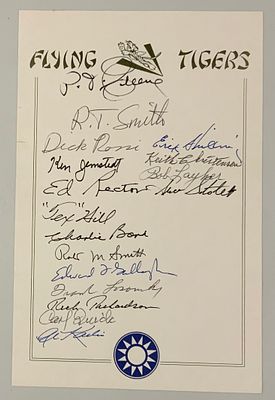 FLYING TIGERS
P. J. Greene
R.T. Smith
Dick Rossi Erik Shilling
Ken Jernstedt Keith Christensen
Bob Layher
Ed Rector
"Tex" Hill
Charlie Bond
Robt M. Smith
Edward F Gallagher
Frank Losonsky
Rich Richardson
Carl Quick